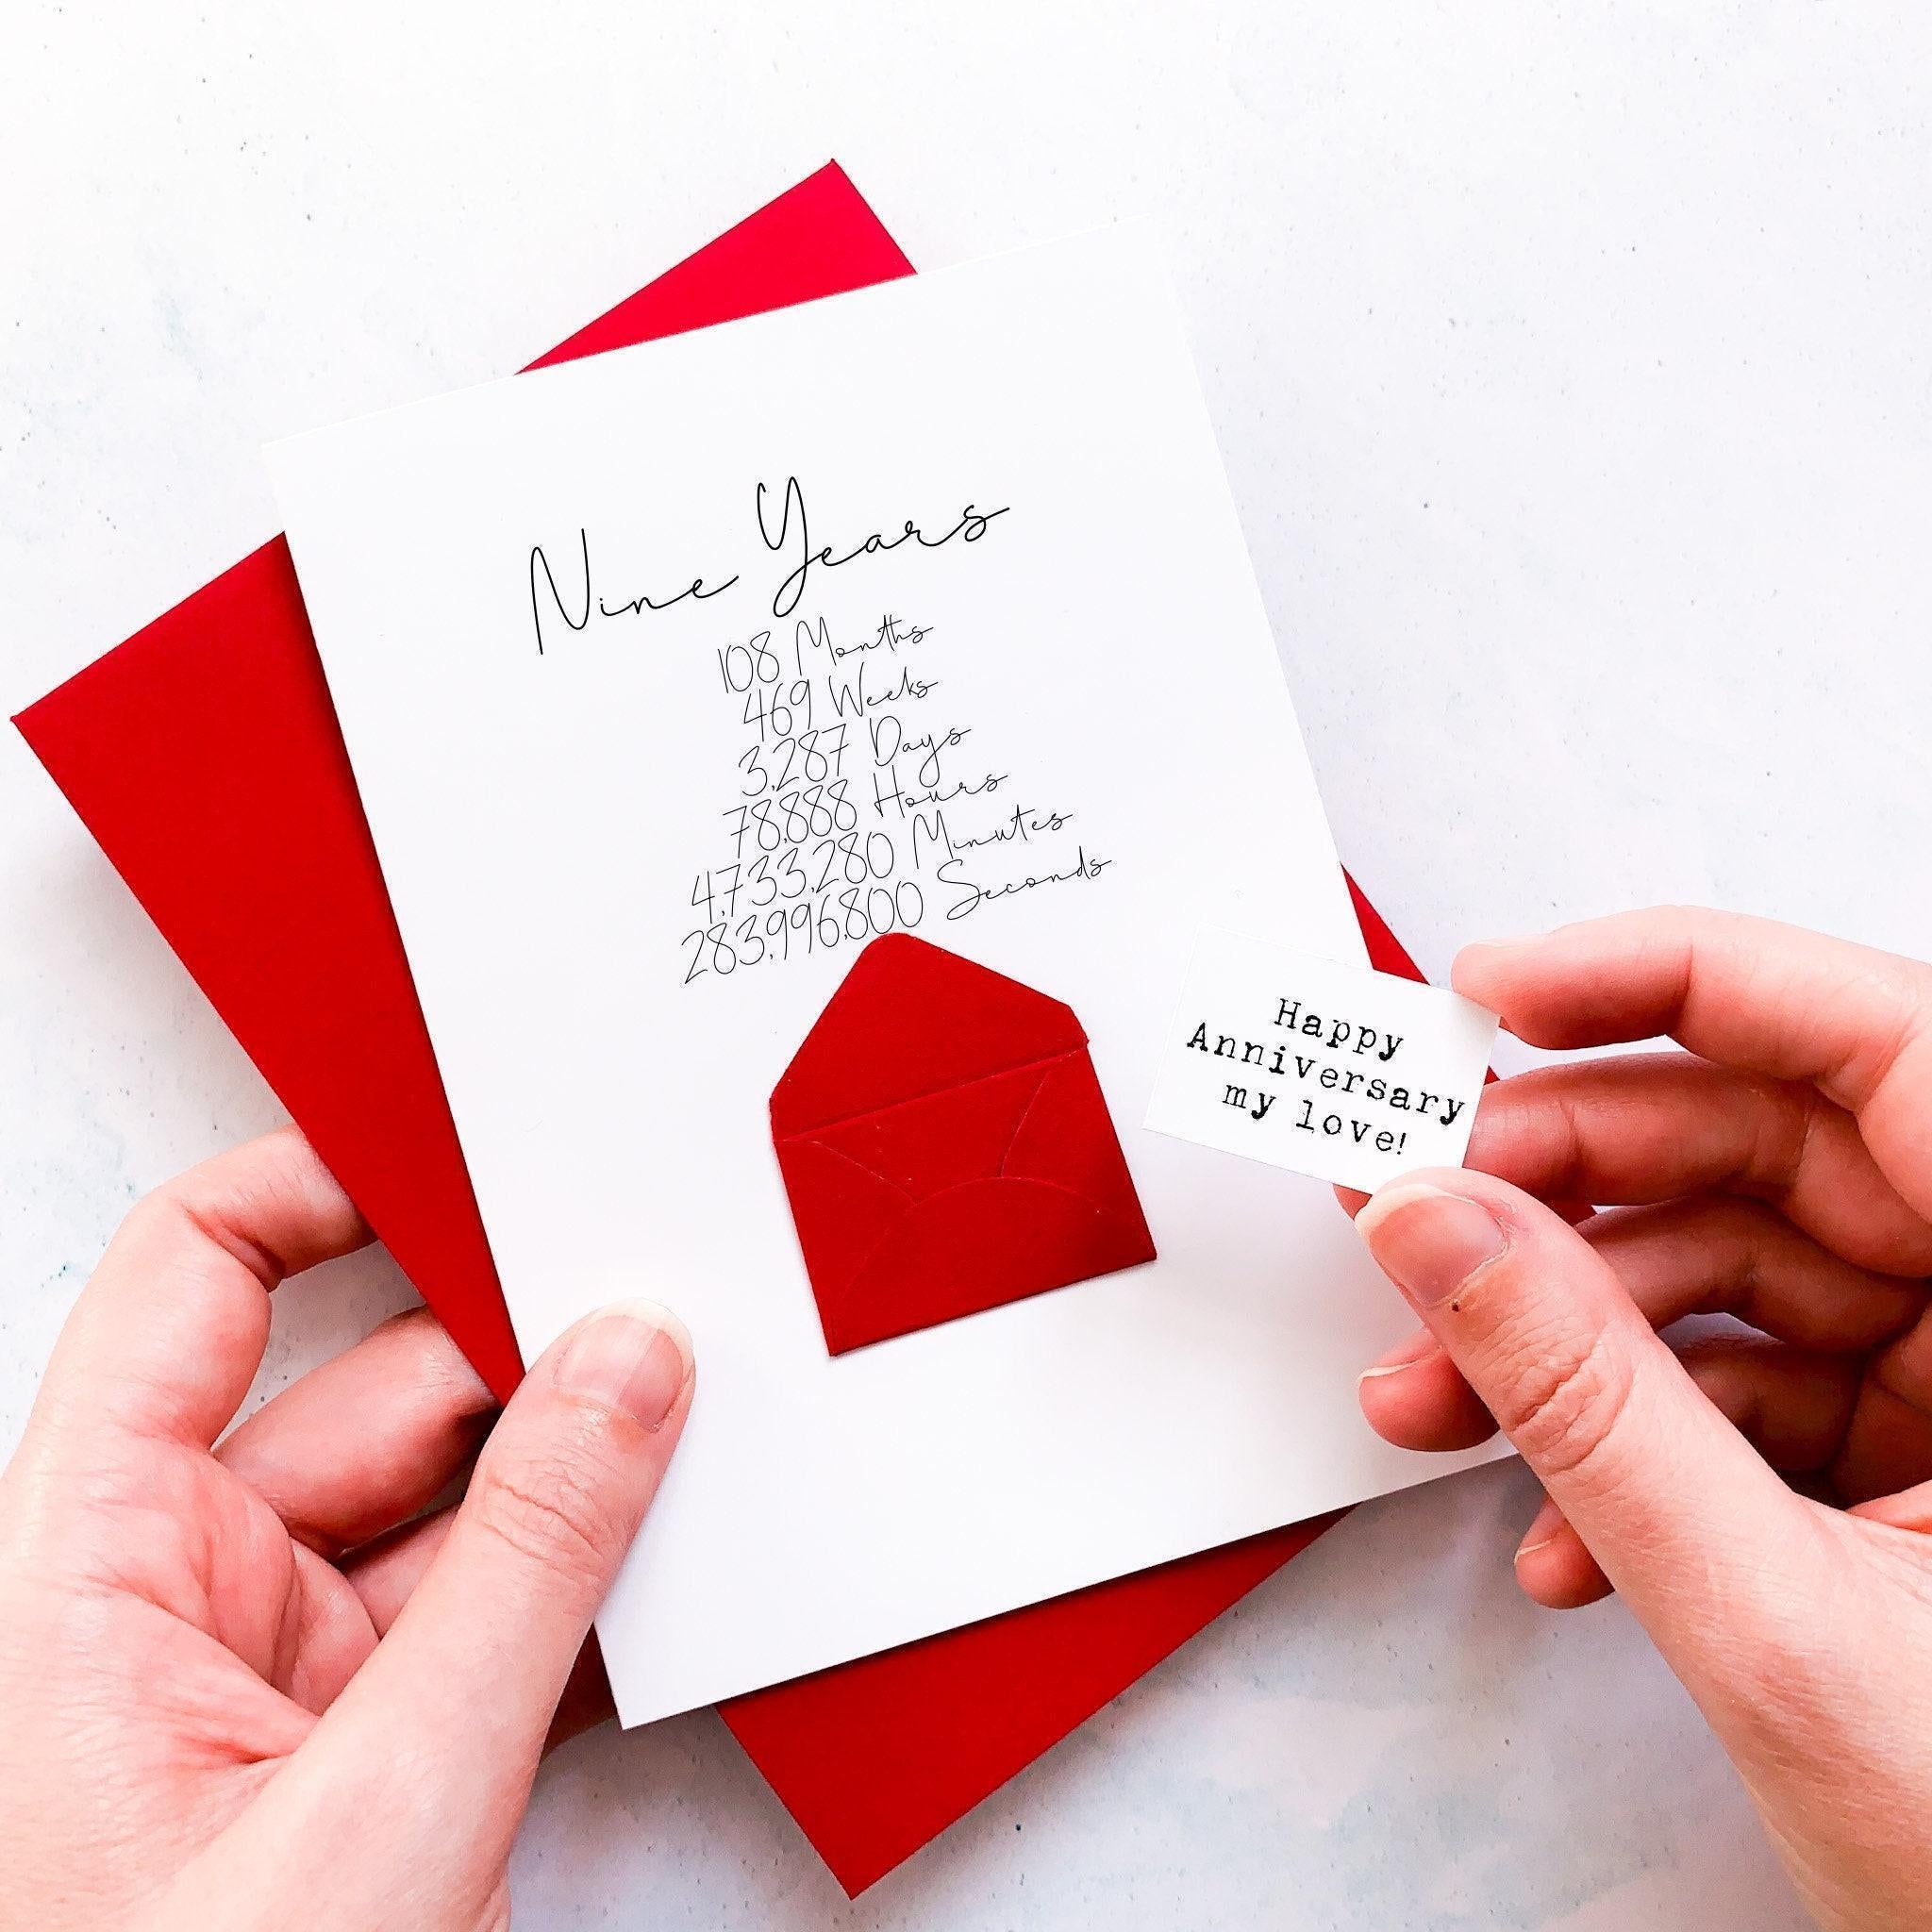 Nine Years
108 Months
469 Weeks
3,287 Days
78,888 Hours
4,733,280 Minutes
283,996,800 Seconds
Happy
Anniversary
my love!